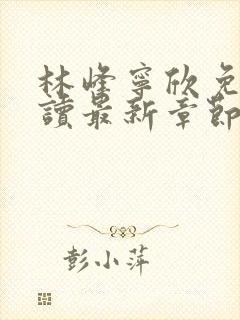 林峰寧欣免
讀最新章節
彭小萍